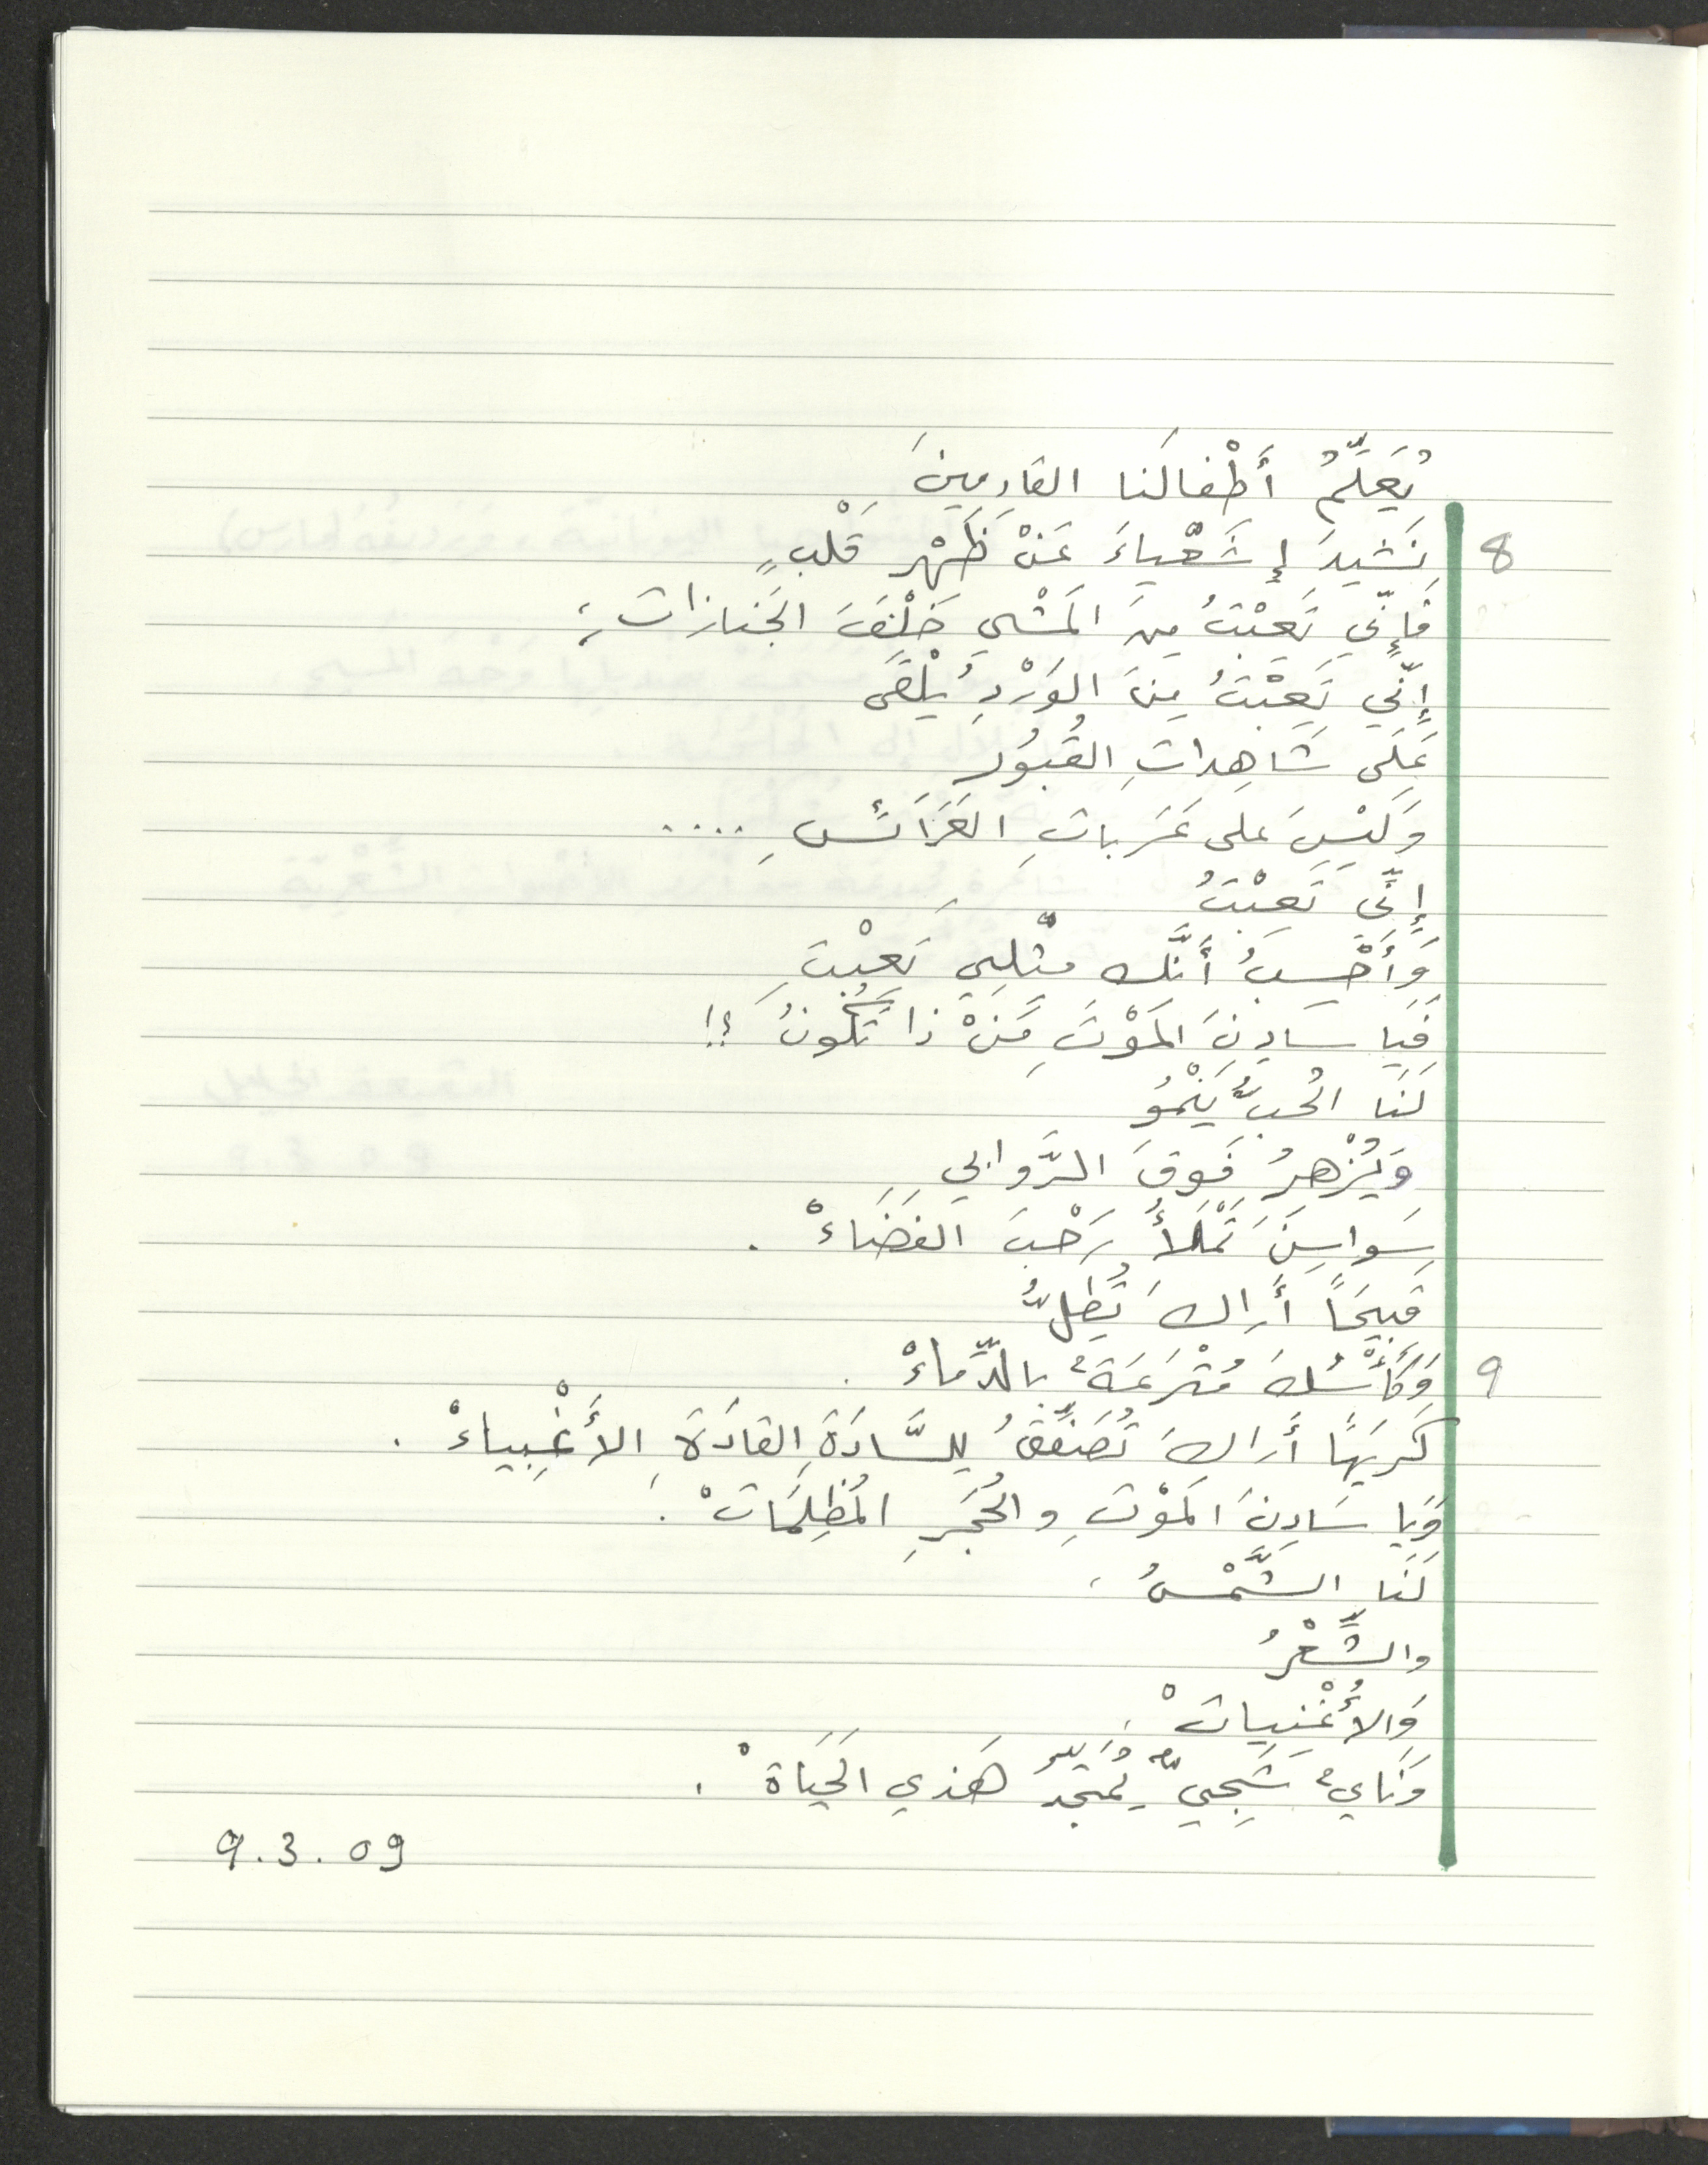 يُعَلِّمُ أَطْفالَنا القادِمِينَ
8 نَشيدَ إِشَعْياءَ عَنْ ظَهْرِ قَلْبٍ
فَإِنّي تَعِبْتُ مِنَ المَشْيِ خَلْفَ الجَنازاتِ؛
إِنّي تَعِبْتُ مِنَ الوَرْدِ يُلْقَى
عَلَى شَاهِداتِ القُبُورِ
وَلَيْسَ على عَرَباتِ العَرَائسِ ....
إِنِّي تَعِبْتُ
وَأَحْسَبُ أَنَّك مثْلِي تَعِبْتَ
فَيَا سَادِنَ المَوْتِ مَنْ ذا تَكُونُ ؟!
لَنَا الحُبُّ يَنْمُو
وَيُزْهِرُ فَوقَ الرَّوابي
سَواسِنَ تَمْلَأُ رَحْبَ الفَضَاءْ .
قَبيحَاً أَراكَ تُطِلُّ
9 وَكَأْسُكَ مُتْرَعَةٌ بالدِّماءْ .
كَريهًا أَراكَ تُصَفِّقُ لِلسَّادَةِ القادَةِ الأَغْبِياءْ .
وَيَا سَادِنَ المَوْتِ والحُجَرِ المُظْلِمَاتْ .
لَنَا الشَّمْسُ ،
والشِّعْرُ
وَالأُغْنِيَاتْ ،
وَنَايٌ شَجِيٌّ يُمَجِّدُ هَذي الحَيَاةْ .
9.3.09